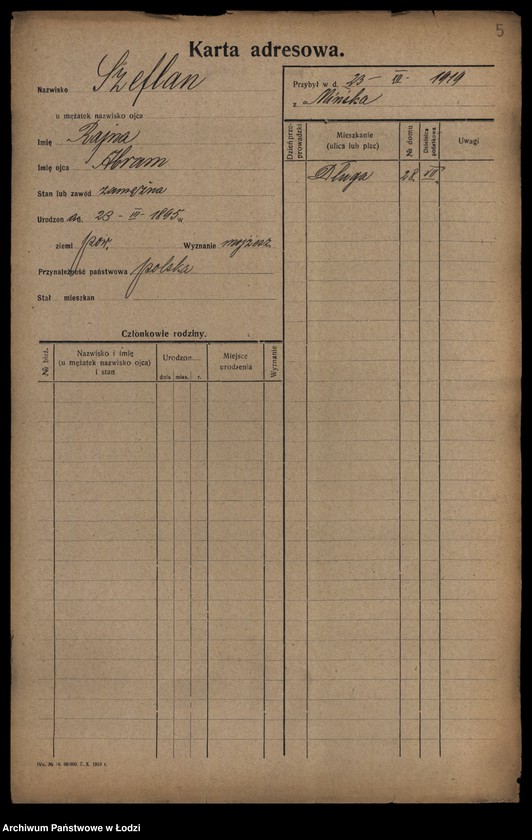 5
Karta adresowa.
Nazwisko Szeflan
u mężatek nazwisko ojca
Imię Rajna
Imię ojca Abram
Stan lub zawód zamężna
Urodzon dn. 23 - III - 1895 w
ziemi pow. Wyznanie mojżesz.
Przynależność państwowa polska
Stał mieszkan
Członkowie rodziny.
№ bież.
Nazwisko i imię (u mężatek nazwisko ojca) i stan
Urodzon...
dnia mies. r.
Miejsce urodzenia
Wyznanie
Przybył w d. 23 - III - 1919
z Mińska
Dzień przeprowadzki
Mieszkanie (ulica lub plac)
№ domu
Dzielnica podatkowa
Uwagi
Długa 28 VII
Archiwum Państwowe w Łodzi